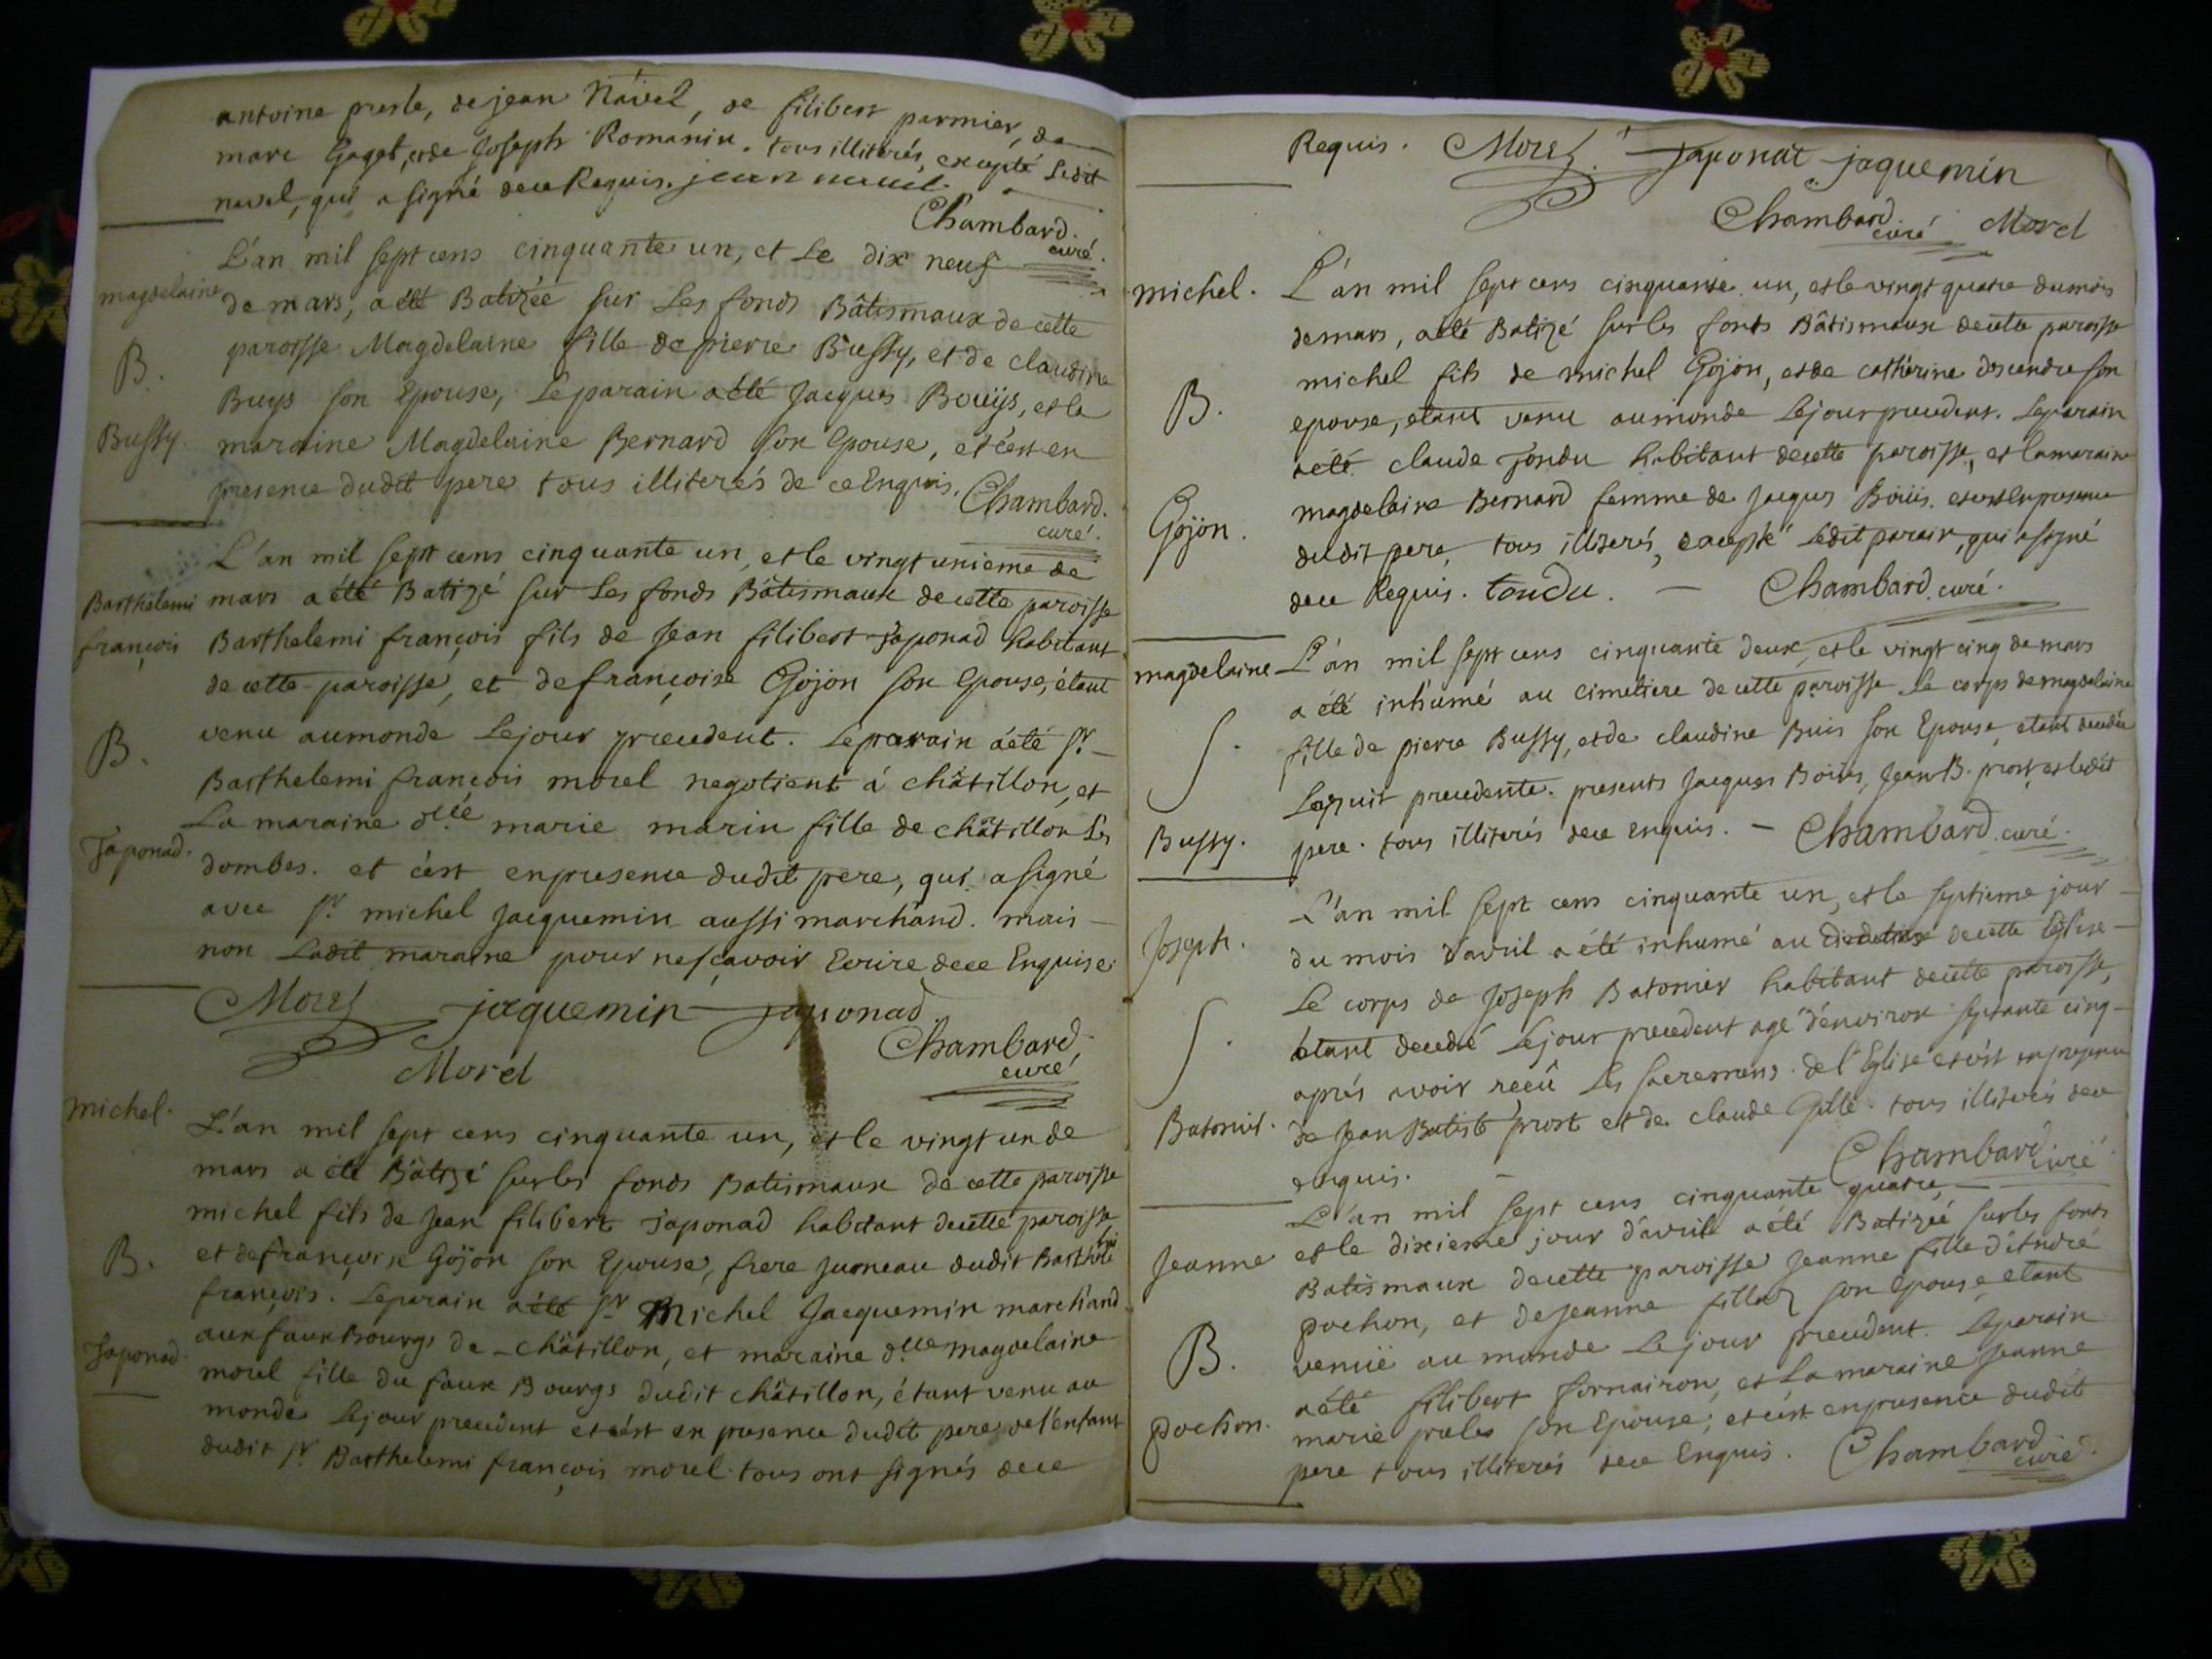 antoine presle, de jean Navel, de filibert parmier, de
marc Gaget, et de Joseph Romanin. tous illiterés, excepté ledit
navel, qui a signé de ce Requis. jean navel
Chambard.
curé.
L'an mil sept cens cinquante un, et Le dix neuf
magdelaine
de mars, a eté Batizée sur Les fonds Bâtismaux de cette
paroisse Magdelaine fille de pierre Bussy, et de claudine
B.
Buys son Epouse, Le parain a été Jacques Bouÿs, et la
Bussy.
maraine Magdelaine Bernard son Epouse, et c'est en
presence dudit pere tous illiterés de ce Enquis. Chambard.
curé.
L'an mil sept cens cinquante un, et le vingt unieme de
Barthelemi
mars a été Batizé sur Les fonds Bâtismaux de cette paroisse
françois
Barthelemi françois fils de Jean filibert Japonad habitant
de cette paroisse, et de françoise Gojon son Epouse, étant
B.
venu au monde Le jour precedent. Le parain a été Sr
Barthelemi françois morel negotient à châtillon, et
La maraine dlle marie marin fille de châtillon Les
Japonad.
dombes. et c'est en presence dudit pere, qui a signé
avec Sr michel Jacquemin aussi marchand. mais
non Ladit maraine pour ne sçavoir Ecrire de ce Enquise.
Morel jaquemin japonad
Chambard.
curé
Morel
michel.
L'an mil sept cens cinquante un, et le vingt un de
mars a été Bâtizé sur les fonds Batismaux de cette paroisse
michel fils de Jean filibert Japonad habitant de cette paroisse
B.
et de françoise Gojon son Epouse, frere jumeau dudit Barthelemi
françois. Le parain a été Sr Michel Jacquemin marchand
Japonad.
aux fauxbourgs de châtillon, et maraine dlle magdelaine
morel fille du faux Bourgs dudit châtillon, étant venu au
monde Le jour precedent et c'est en presence dudit pere de l'enfant
dudit Sr Barthelemi françois morel tous ont signés de ce
Requis. Morel japonat jaquemin
Chambard curé Morel
michel.
L'an mil sept cens cinquante un, et le vingt quatre du mois
de mars, a été Batizé sur les fonts Bâtismaux de cette paroisse
michel fils de michel Gojon, et de catherine descendre son
B.
epouse, etant venu au monde Le jour precedent. Le parain
a été claude Tondu habitant de cette paroisse, et la maraine
magdelaine Bernard femme de Jacques Boüis. et c'est en presence
Gojon.
dudit pere, tous illiterés, excepté Ledit parain, qui a signé
de ce Requis. tondu. — Chambard. curé.
magdelaine
L'an mil sept cens cinquante deux, et le vingt cinq de mars
a été inhumé au cimetiere de cette paroisse le corps de magdelaine
S.
fille de pierre Bussy, et de claudine Buis son Epouse, etant decedée
La nuit precedente. presents Jacques Boüis, Jean B. prost, et ledit
Bussy.
pere. tous illiterés de ce enquis. — Chambard. curé.
L'an mil sept cens cinquante un, et le septieme jour
Joseph.
du mois d'avril a été inhumé au de cette Eglise
Le corps de Joseph Batonier habitant de cette paroisse,
S.
étant decedé Le jour precedent agé d'environ septante cinq
aprés avoir reçû Les sacremens de l'Eglise et c'est en presence
Batonier.
de Jean Batiste prost et de claude Gille. tous illiterés de ce
enquis. — Chambard. curé
L'an mil sept cens cinquante quatre,
Jeanne
et le dixieme jour d'avril a été Batizée sur les fonts
Batismaux de cette paroisse Jeanne fille d'André
pochon, et de Jeanne fillaz son epouse, etant
B.
venuë au monde Le jour precedent. Le parain
a été filibert fornairon, et La maraine Jeanne
pochon.
marie son Epouse; et c'est en presence dudit
pere tous illiterés de ce Enquis. Chambard.
curé.